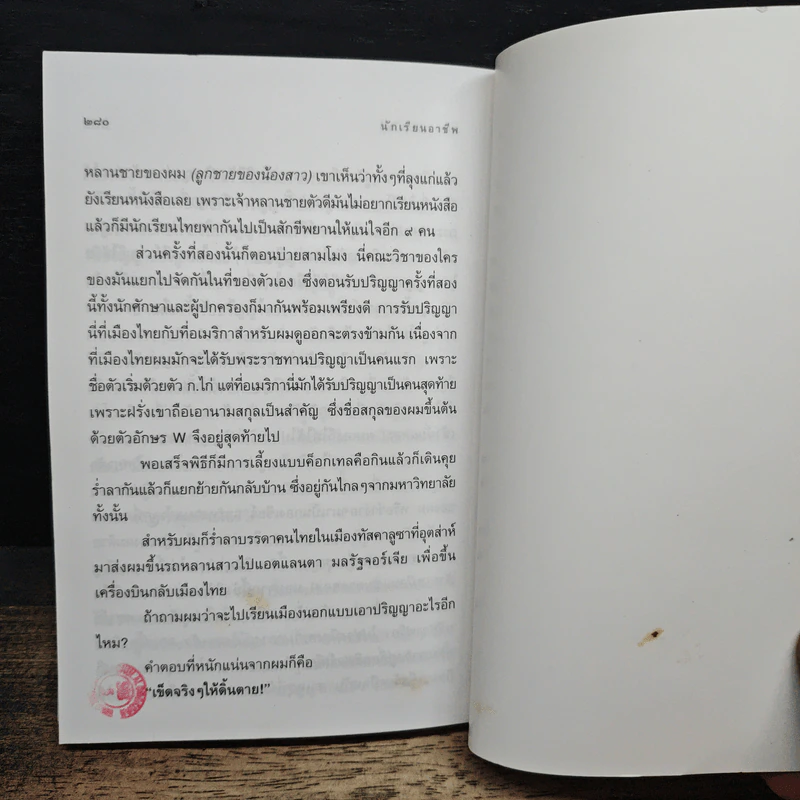 ๒๘๐
นักเรียนอาชีพ
หลานชายของผม (ลูกชายของน้องสาว) เขาเห็นว่าทั้งๆที่ลุงแก่แล้ว
ยังเรียนหนังสือเลย เพราะเจ้าหลานชายตัวดีมันไม่อยากเรียนหนังสือ
แล้วก็มีนักเรียนไทยพากันไปเป็นสักขีพยานให้แน่ใจอีก ๙ คน
ส่วนครั้งที่สองนั้นก็ตอนบ่ายสามโมง นี่คณะวิชาของใคร
ของมันแยกไปจัดกันในที่ของตัวเอง ซึ่งตอนรับปริญญาครั้งที่สอง
นี้ทั้งนักศึกษาและผู้ปกครองก็มากันพร้อมเพรียงดี การรับปริญญา
นี่ที่เมืองไทยกับที่อเมริกาสำหรับผมดูออกจะตรงข้ามกัน เนื่องจาก
ที่เมืองไทยผมมักจะได้รับพระราชทานปริญญาเป็นคนแรก เพราะ
ชื่อตัวเริ่มด้วยตัว ก.ไก่ แต่ที่อเมริกานี่มักได้รับปริญญาเป็นคนสุดท้าย
เพราะฝรั่งเขาถือเอานามสกุลเป็นสำคัญ ซึ่งชื่อสกุลของผมขึ้นต้น
ด้วยตัวอักษร W จึงอยู่สุดท้ายไป
พอเสร็จพิธีก็มีการเลี้ยงแบบค็อกเทลคือกินแล้วก็เดินคุย
ร่ำลากันแล้วก็แยกย้ายกันกลับบ้าน ซึ่งอยู่กันไกลๆจากมหาวิทยาลัย
ทั้งนั้น
สำหรับผมก็ร่ำลาบรรดาคนไทยในเมืองทัสคาลูซาที่อุตส่าห์
มาส่งผมขึ้นรถหลานสาวไปแอตแลนตา มลรัฐจอร์เจีย เพื่อขึ้น
เครื่องบินกลับเมืองไทย
ถ้าถามผมว่าจะไปเรียนเมืองนอกแบบเอาปริญญาอะไรอีก
ไหม?
คำตอบที่หนักแน่นจากผมก็คือ
“เข็ดจริงๆให้ดิ้นตาย!”